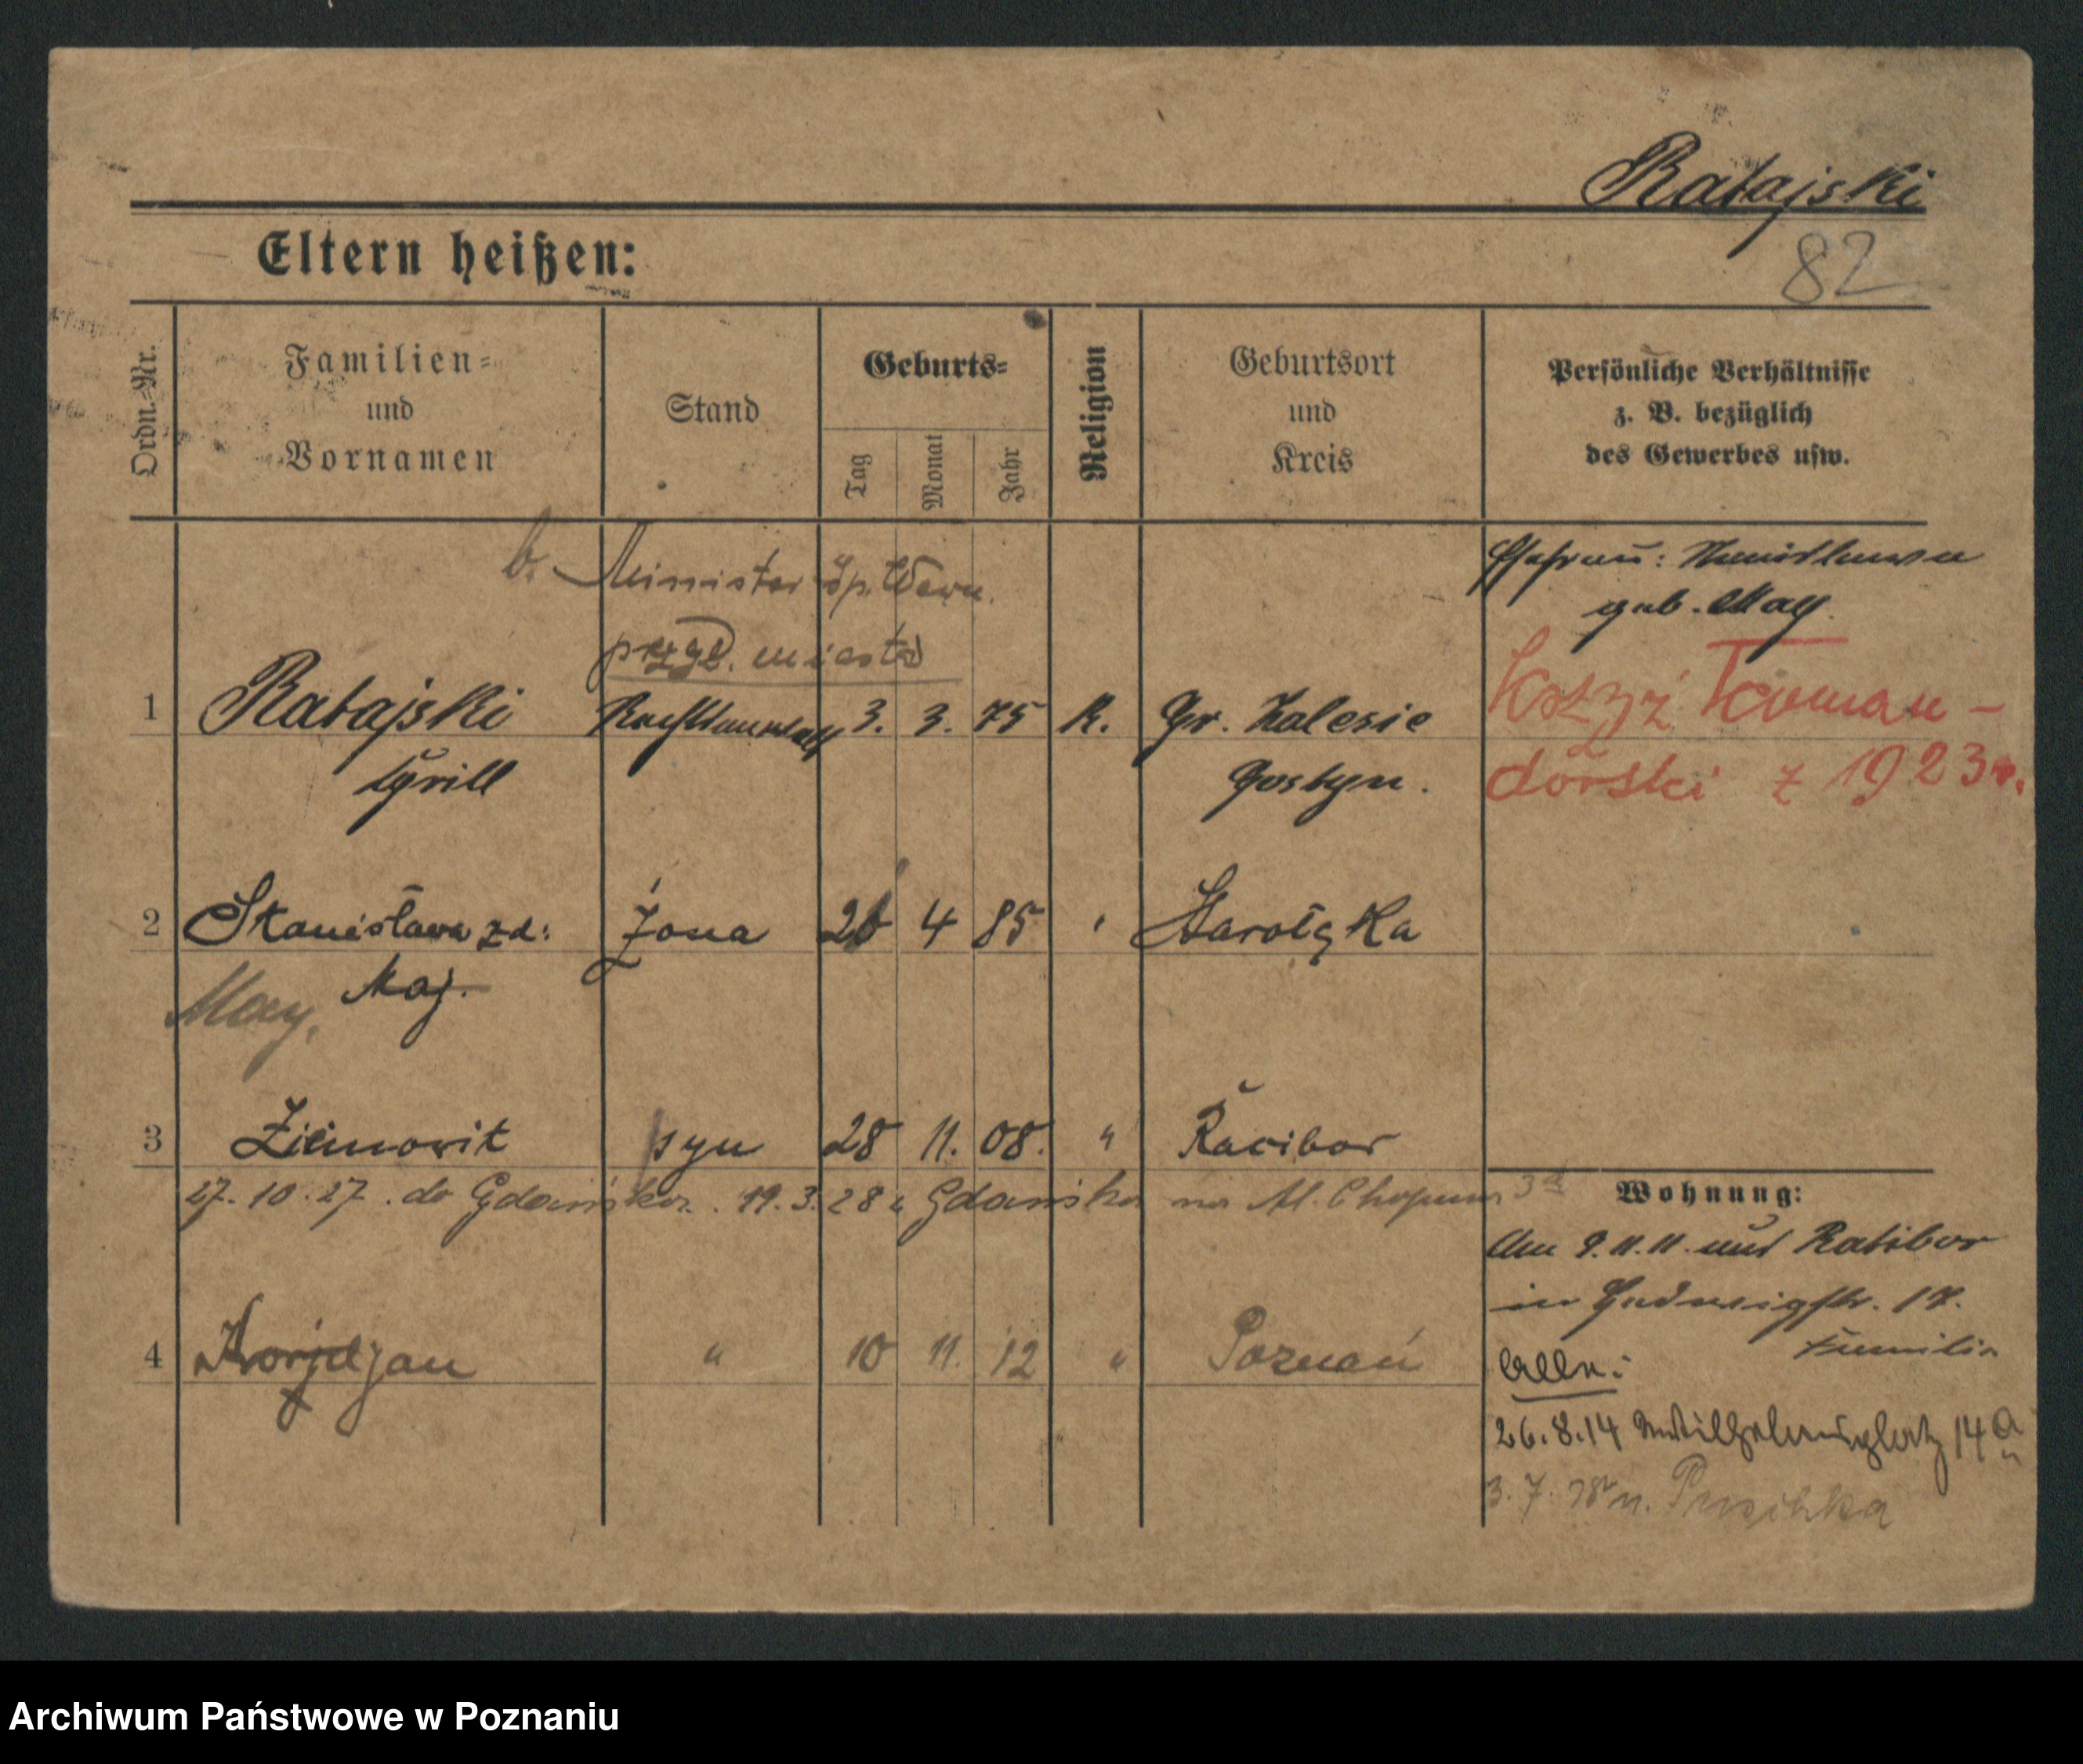 Ratajski
82
Eltern heißen:
Ordn.-Nr.
Familien-
und
Vornamen
Stand
Geburts-
Tag
Monat
Jahr
Religion
Geburtsort
und
Kreis
Persönliche Verhältnisse
z. B. bezüglich
des Gewerbes usw.
b. Minister Sp. Wewn.
miasta
Ehefrau: Stanislawa
geb. May
1 Ratajski Rechtsanwalt 3. 3. 75 R. Gr. Zalesie
Cyrill Gostyn.
Krzyż Koman-
dorski z 1923 r.
2 Stanisława zd: Żona 26 4 85 " Starołęka
Maj.
May.
3 Ziemowit syn 28 11. 08. " Racibor
27. 10. 27. do Gdańska. 19. 3. 28 z Gdańska na Al. Chopina 3a
Wohnung:
Am 9. 11. 11. aus Ratibor
in Hedwigstr. 17.
Familie
4 Jan " 10 11. 12 " Poznań
Alle:
26. 8. 14 Wilhelmsplatz 14a
3. 7. 18 n.
Archiwum Państwowe w Poznaniu